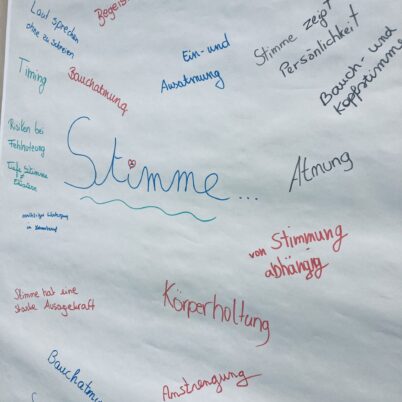 Laut sprechen
ohne zu schreien
Timing
Bauchatmung
Ein- und
Ausatmung
Stimme zeigt
Persönlichkeit
Bauch- und
Kopfstimme
Risiken bei
Tiefe Stimme
Stimme...
Atmung
von Stimmung
abhängig
Stimme hat eine
starke Aussagekraft
Körperhaltung
Anstrengung